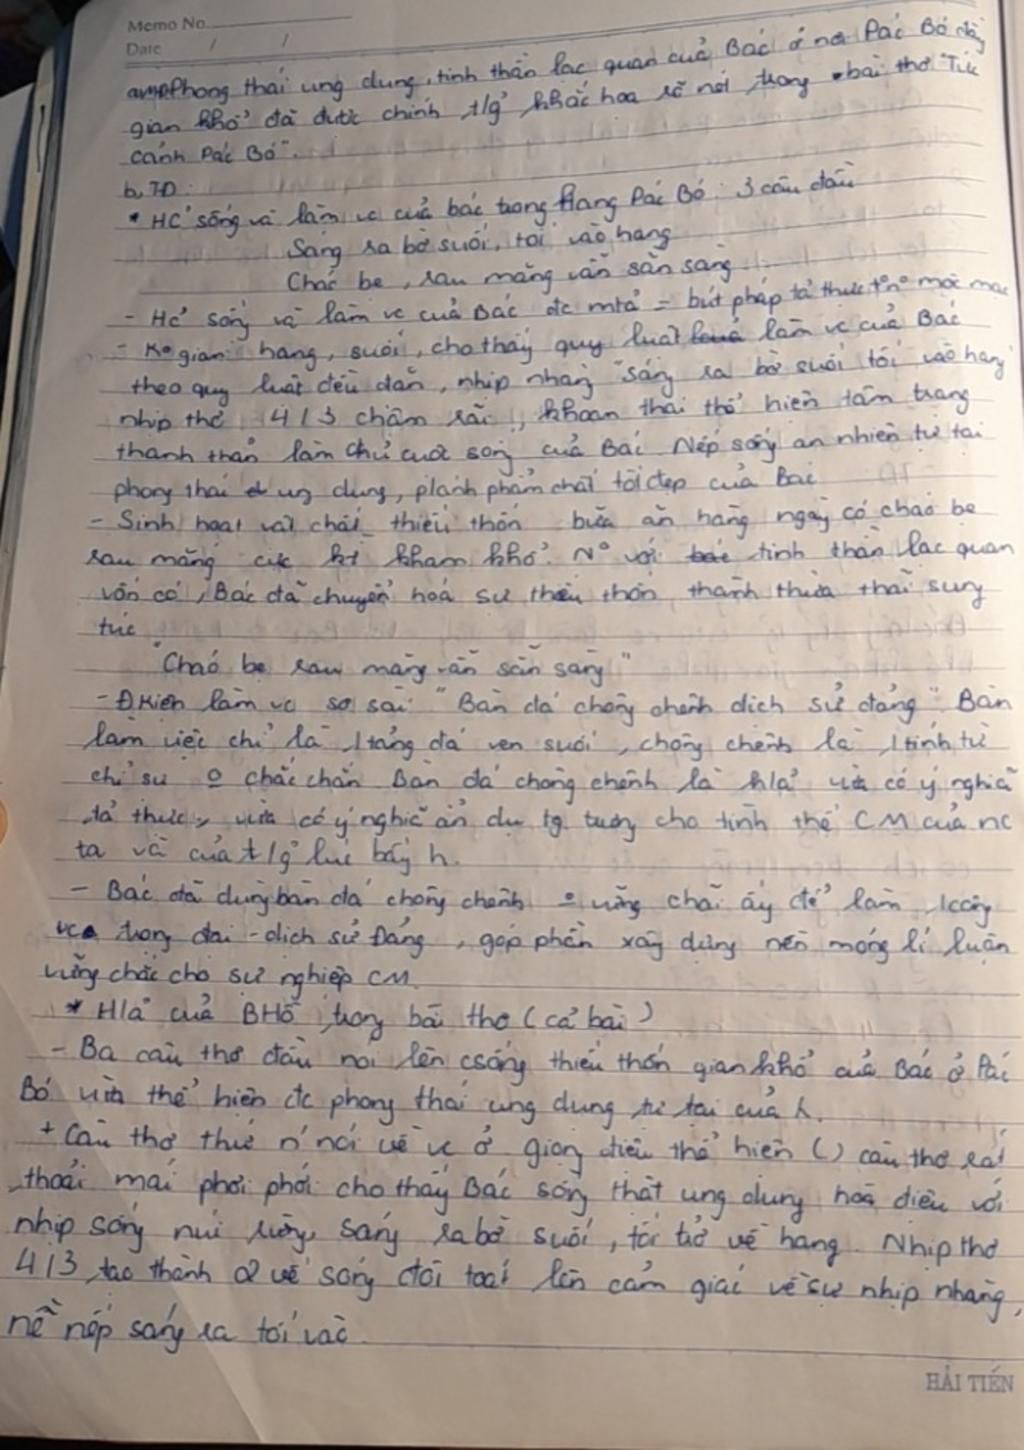 Memo No.
Date / /
Phong thái ung dung, tinh thần lạc quan của Bác ở nơi Pác Bó đầy
gian khổ đã được chính t/g khắc hoạ rõ nét trong bài thơ "Tức
cảnh Pác Bó".
b, TĐ:
* HC sống và làm vc của bác trong Hang Pác Bó: 3 câu đầu
Sáng ra bờ suối, tối vào hang
Cháo bẹ, rau măng vẫn sẵn sàng
- HC sống và làm vc của Bác đc mtả = bút pháp tả thực mộc mạc
- Ko gian: hang, suối, cho thấy quy luật làm vc của Bác
theo quy luật đều đặn, nhịp nhàng "Sáng ra bờ suối tối vào hang"
nhịp thơ 4/3 chậm rãi, khoan thai thể hiện tâm trạng
thanh thản làm chủ cuộc sống của Bác Nếp sống an nhiên tự tại
phong thái ung dung, phẩm chất tốt đẹp của Bác
- Sinh hoạt vật chất thiếu thốn bữa ăn hàng ngày có cháo bẹ
rau măng cực kì kham khổ. No với tinh thần lạc quan
vốn có, Bác đã chuyển hoá sự thiếu thốn thành thừa thãi sung
túc
"Cháo bẹ rau măng vẫn sẵn sàng"
- Đkiện làm vc sơ sài "Bàn đá chông chênh dịch sử đảng" Bàn
làm việc chỉ là 1 tảng đá ven suối, chông chênh là 1 tính từ
chỉ sự o chắc chắn Bàn đá chông chênh là h/ả vừa có ý nghĩa
tả thực, vừa có ý nghĩa ẩn dụ tg trưng cho tình thế CM của nc
ta và của t/g lúc bấy h.
- Bác đã dùng bàn đá chông chênh o vững chãi ấy để làm 1 công
vc trọng đại - dịch sử Đảng, góp phần xây dựng nền móng lí luận
vững chắc cho sự nghiệp CM.
* H/ả của BHồ trong bài thơ (cả bài)
- Ba câu thơ đầu nói lên csống thiếu thốn gian khổ của Bác ở Pác
Bó vừa thể hiện đc phong thái ung dung tự tại của h.
+ Câu thơ thứ n' nói về vc ở giọng điệu thể hiện () câu thơ rất
thoải mái phơi phới cho thấy Bác sống thật ung dung hoà điệu với
nhịp sống núi rừng, sáng ra bờ suối, tối trở về hang. Nhịp thơ
4/3 tạo thành 2 vế sóng đôi toát lên cảm giác về sự nhịp nhàng,
nề nếp sáng ra tối vào.
HẢI TIẾN